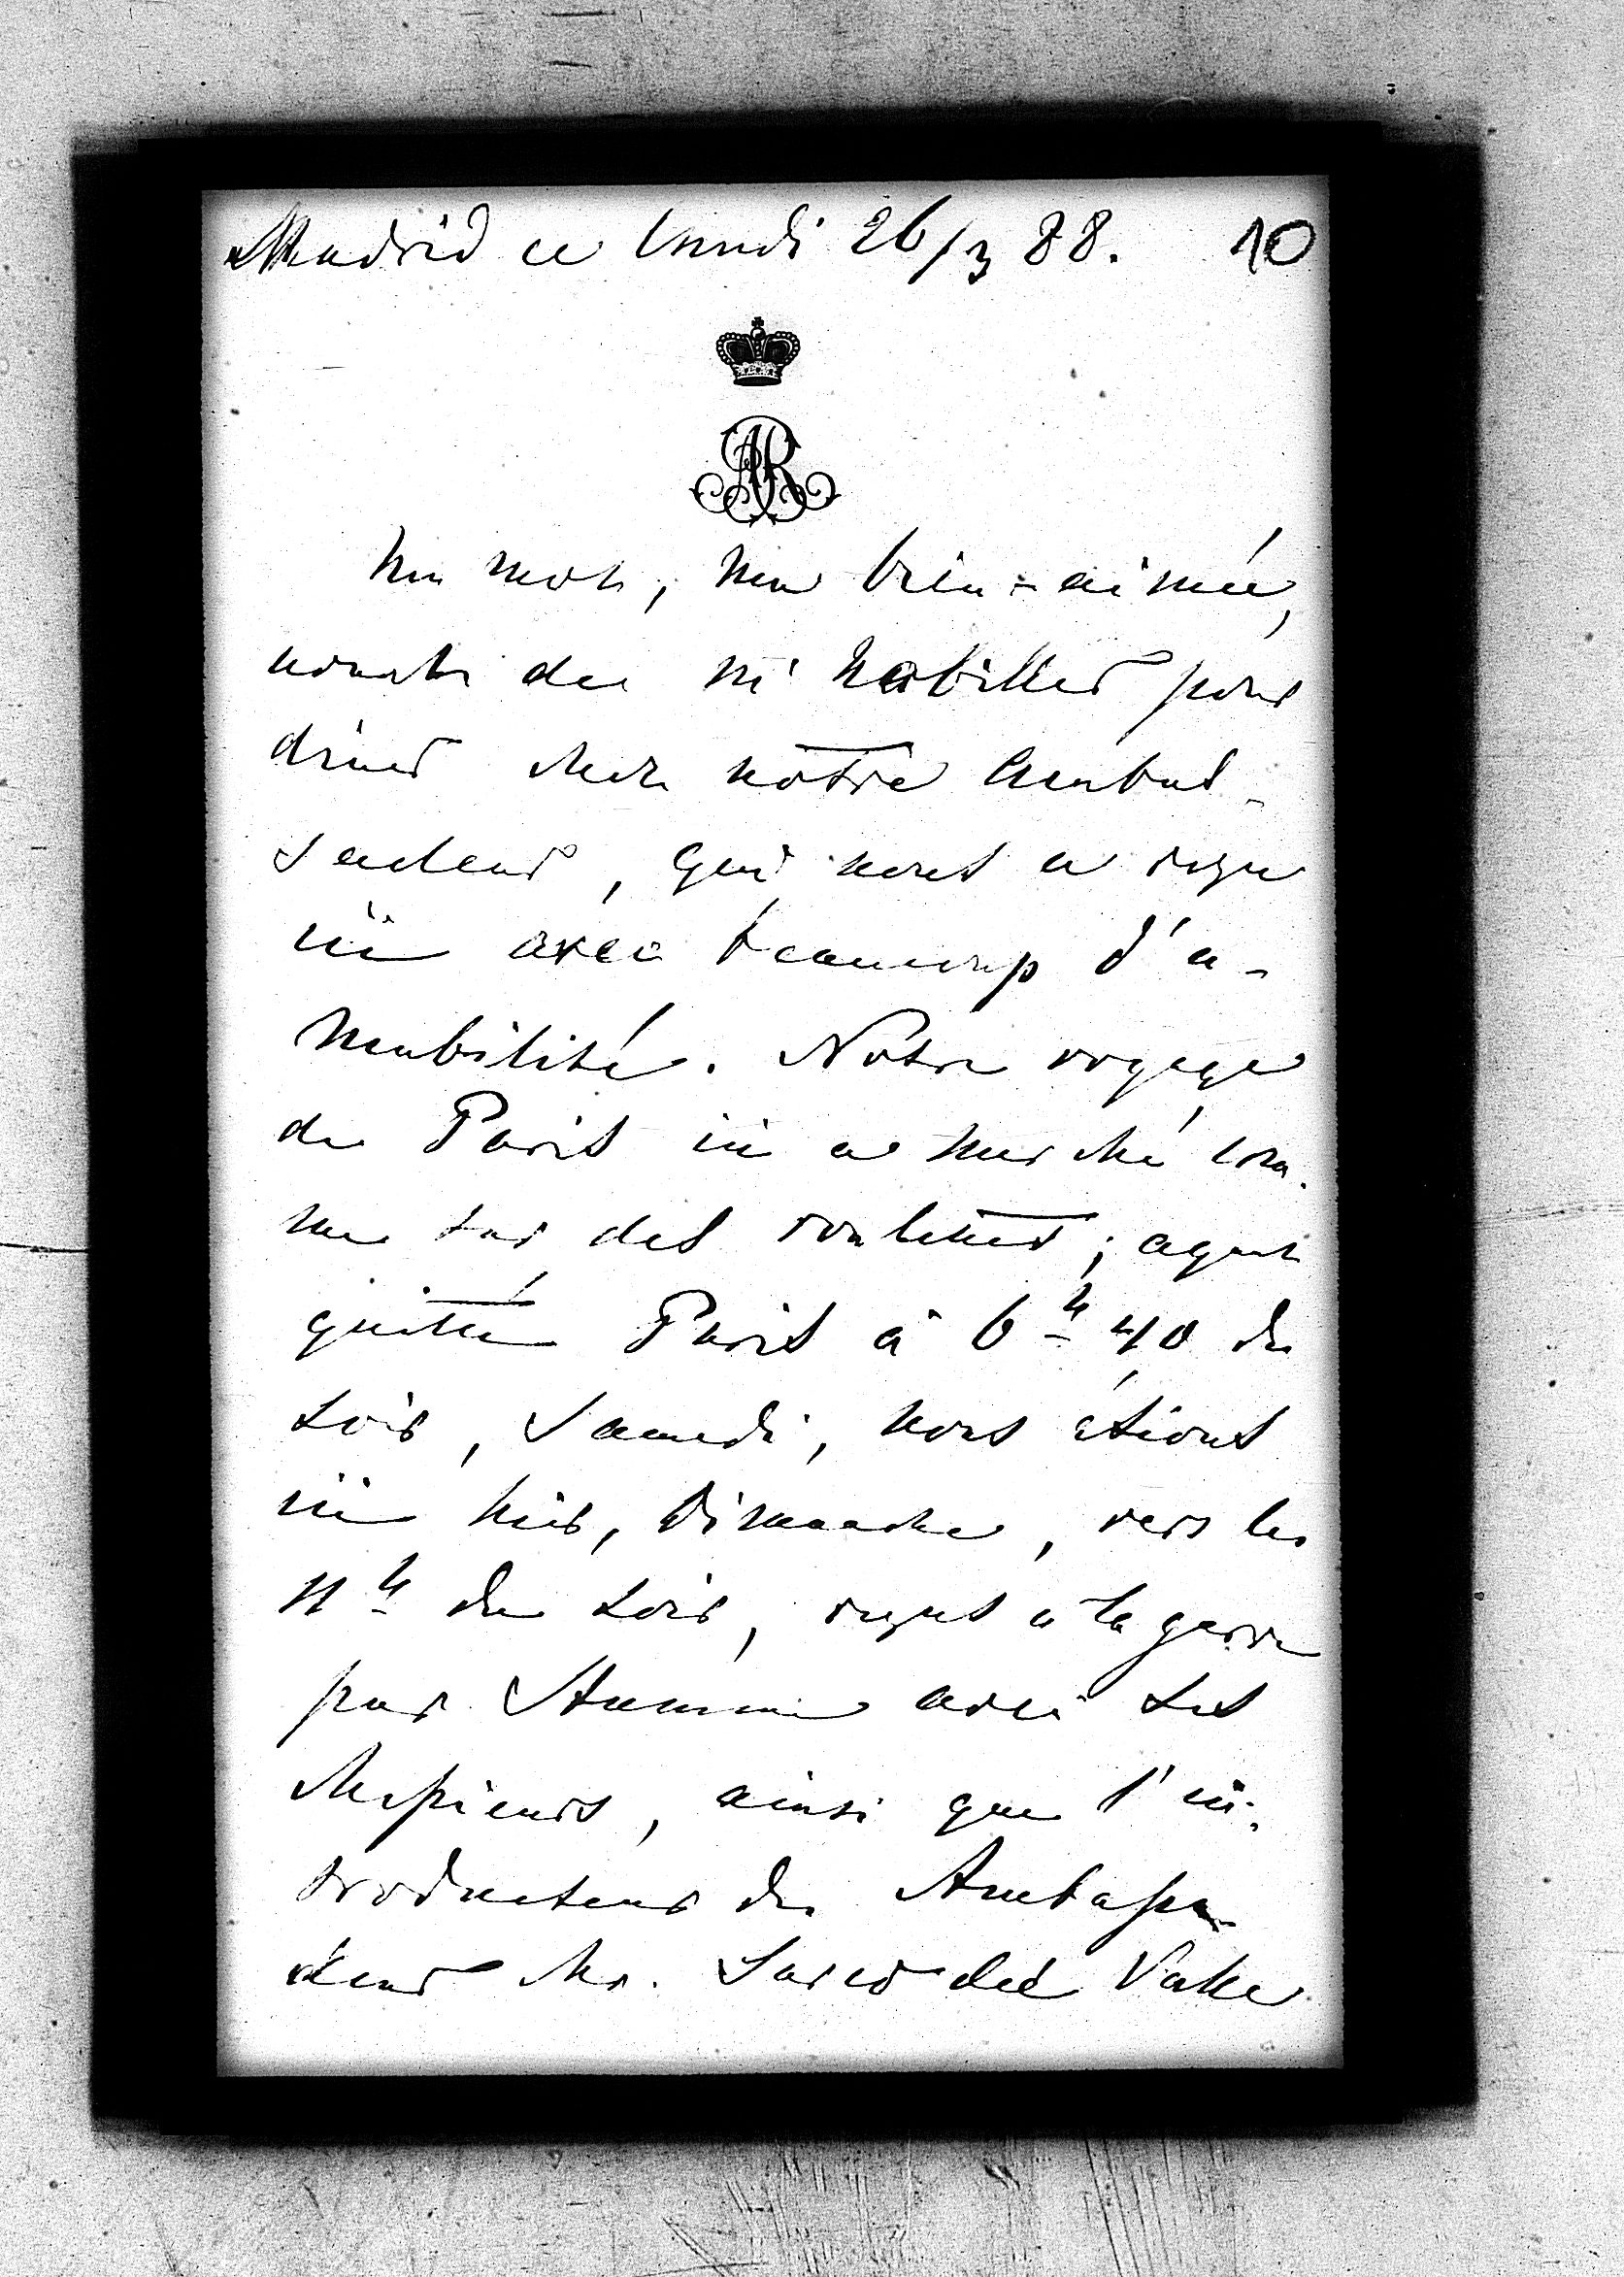 Madrid ce lundi 26/3 88. 10
AR
Un mot, ma bien-aimée,
avant de m'habiller pour
dîner chez notre Ambas-
sadeur, qui nous a reçu
ici avec beaucoup d'a-
mabilité. Notre voyage
de Paris ici a marché com-
me sur des roulettes; ayant
quitté Paris à 6h 40 du
soir, Samedi, nous étions
ici hier, Dimanche, vers les
11h du soir, reçus à la garre
par Stumm avec ses
Messieurs, ainsi que l'in-
troducteur des Ambassa-
deurs Mr. Zarco del Valle